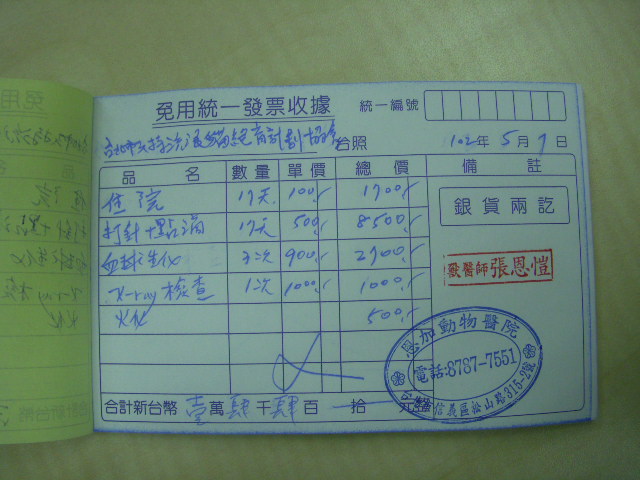 免用統一發票收據 統一編號
台北市 台照 102年 5月 7日
品 名 數量 單價 總 價 備 註
住院 17天 100 1700
打針+點滴 17天 500 8500
血球生化 3次 900 2700
X-ray 檢查 1次 1000 1000
火化 500
銀貨兩訖
獸醫師 張恩愷
恩加動物醫院
電話:8787-7551
信義區松山路315-2號
合計新台幣 壹萬肆千肆百 拾 元整
免用